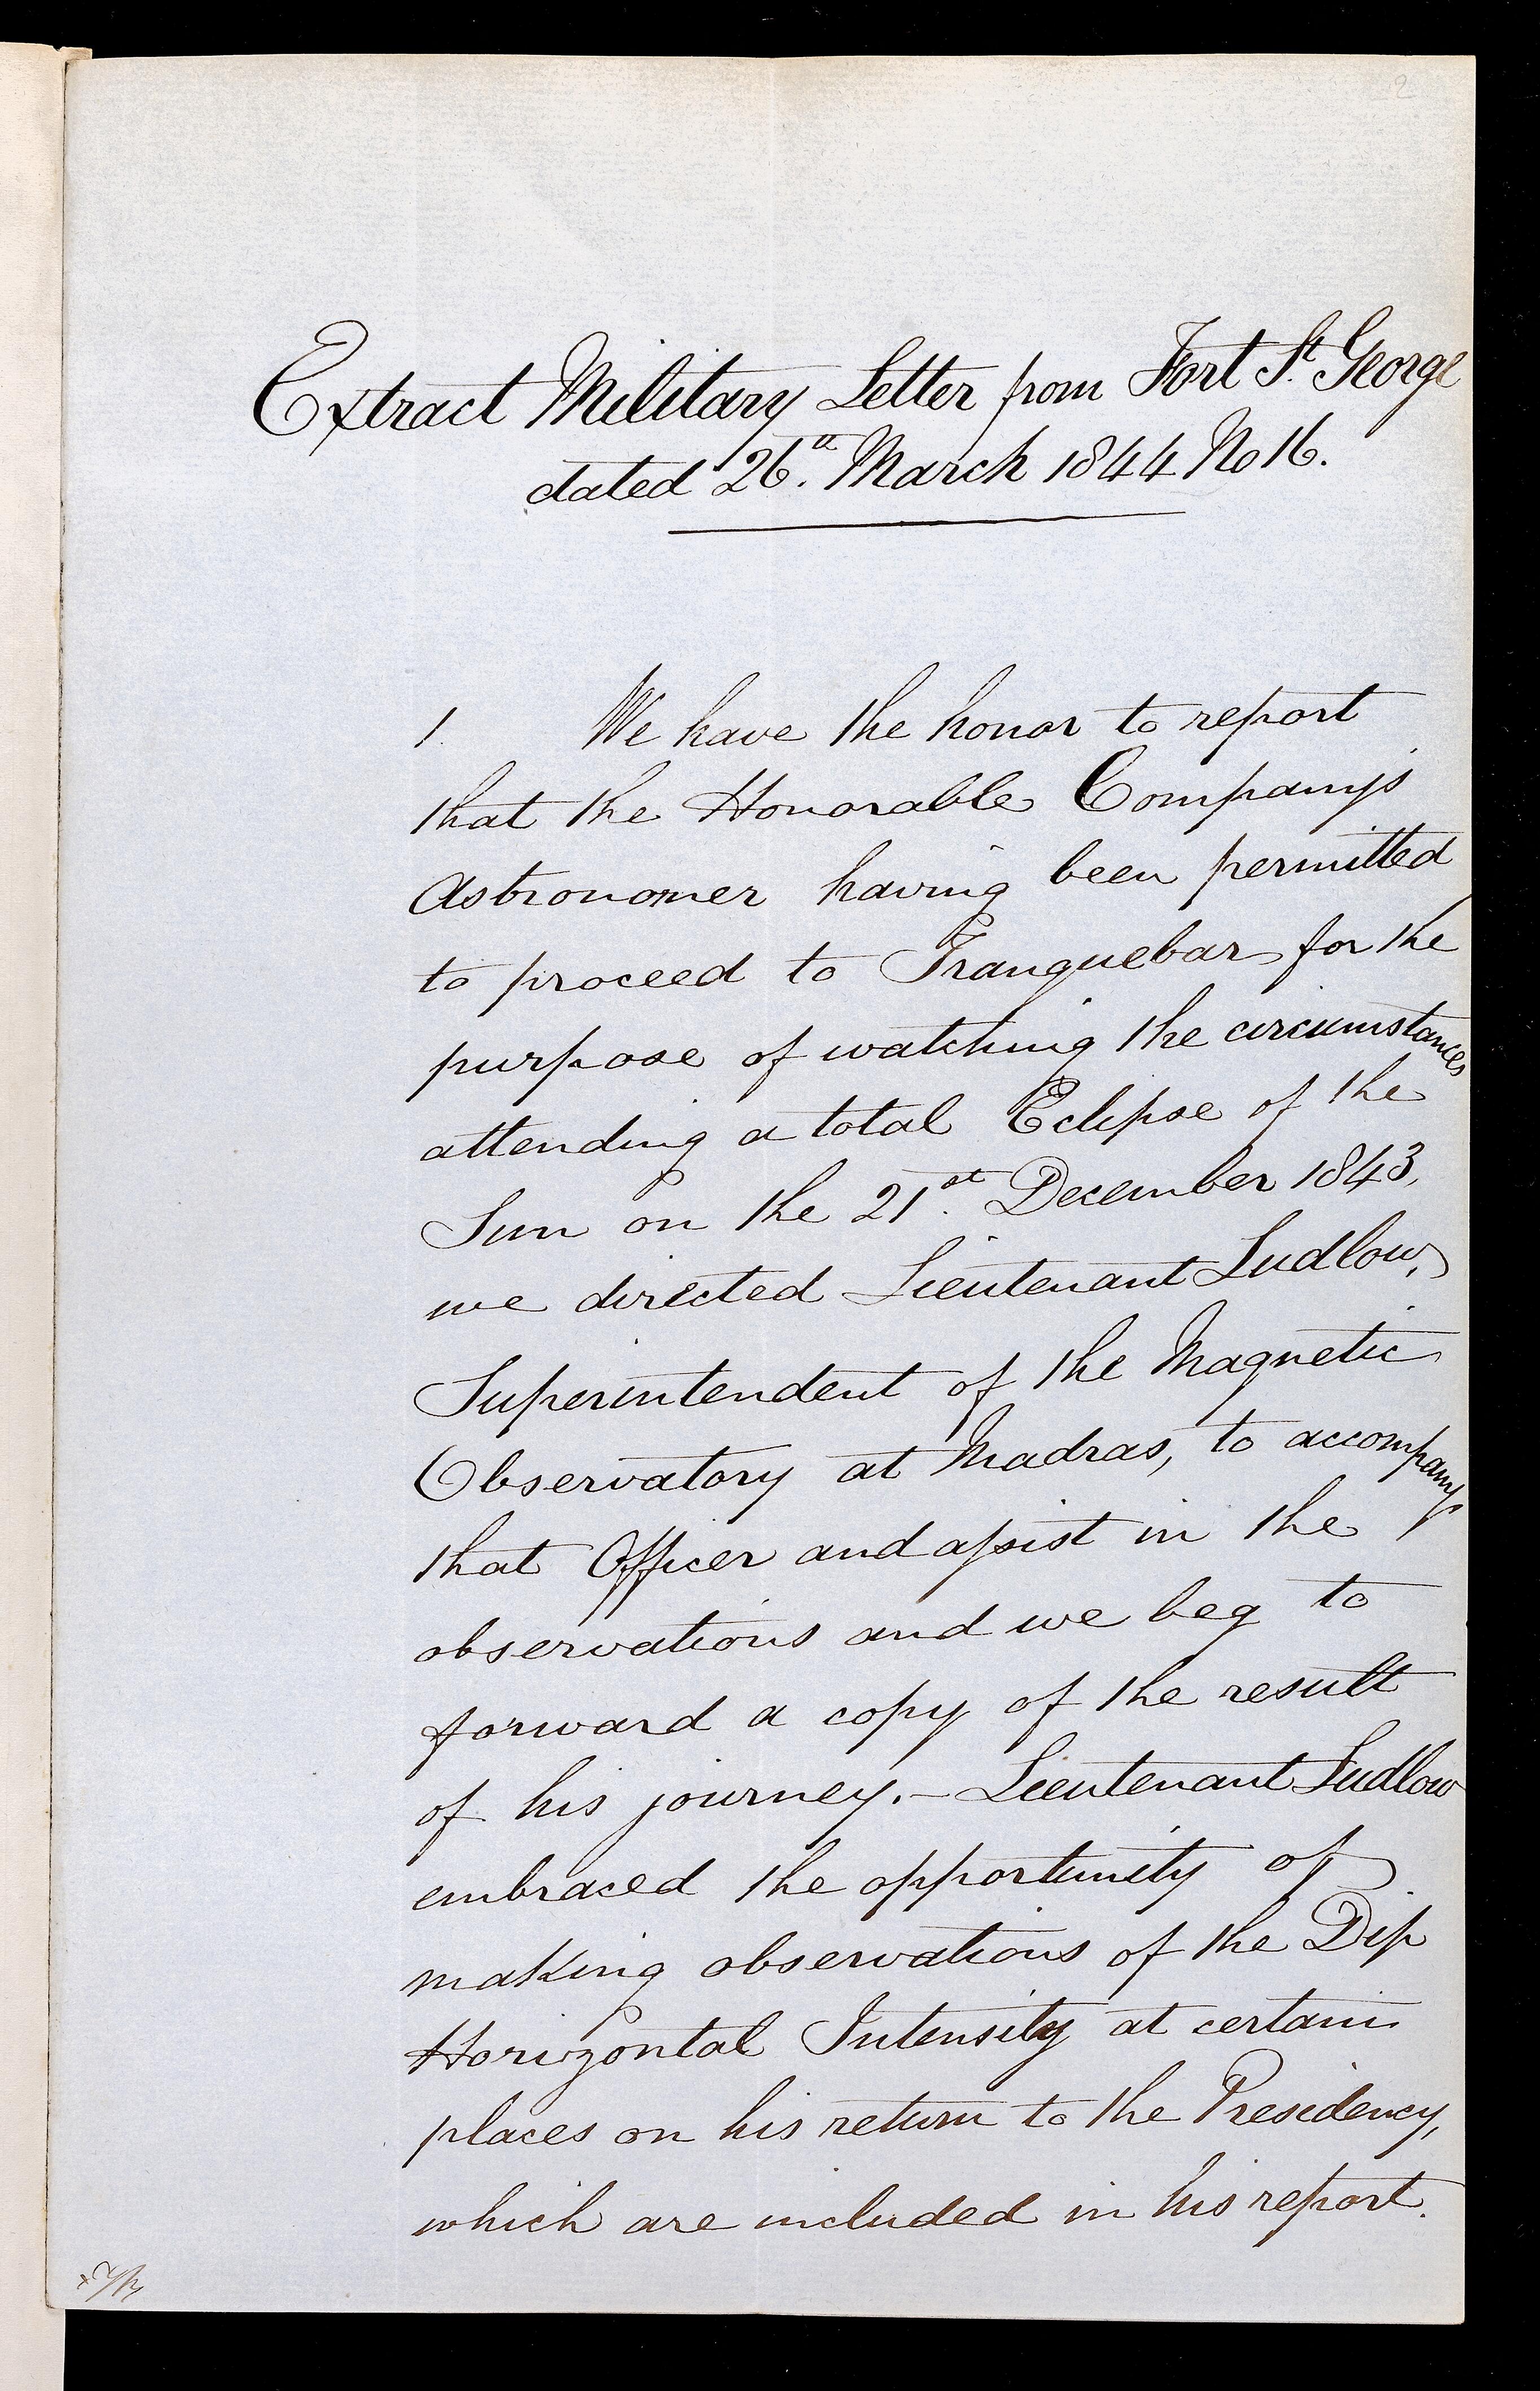 2
Extract Military Letter from Fort St. George
dated 26th. March 1844 No 16.
1. We have the honor to report
that the Honorable Company's
Astronomer having been permitted
to proceed to Tranquebar for the
purpose of watching the circumstances
attending a total Eclipse of the
Sun on the 21st. December 1843,
we directed Lieutenant Ludlow,
Superintendent of the Magnetic
Observatory at Madras, to accompany
that Officer and assist in the
observations and we beg to
forward a copy of the result
of his journey. – Lieutenant Ludlow
embraced the opportunity of
making observations of the Dip
Horizontal Intensity at certain
places on his return to the Presidency,
which are included in his report.